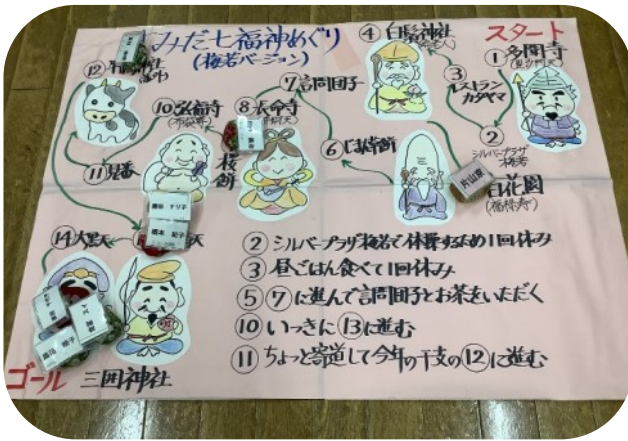 すみだ七福神めぐり
(梅若バージョン)
スタート
① 多聞寺
(毘沙門天)
② シルバープラザ
梅若
③ レストラン
カタヤマ
④ 白髭神社
百花園
(福禄寿)
⑥ じまん草餅
⑦ 言問団子
⑧ 長命寺
(弁財天)
桜餅
⑩ 弘福寺
(布袋尊)
⑪ 見番
⑫
⑭ 大黒天
三囲神社
ゴール
片山
橋本
② シルバープラザ梅若で休憩するため1回休み
③ 昼ごはん食べて1回休み
⑤ ⑦に進んで言問団子とお茶をいただく
⑩ いっきに⑬に進む
⑪ ちょっと寄道して今年の干支の⑫に進む